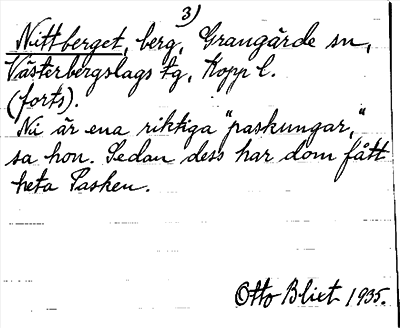 3)
Nittberget, berg, Grangärde sn,
Västerbergslags tg, Kopp l.
(forts).
Ni är ena riktiga "paskungar,"
sa hon. Sedan dess har dom fått
heta Pasken.
Otto Blixt 1935.